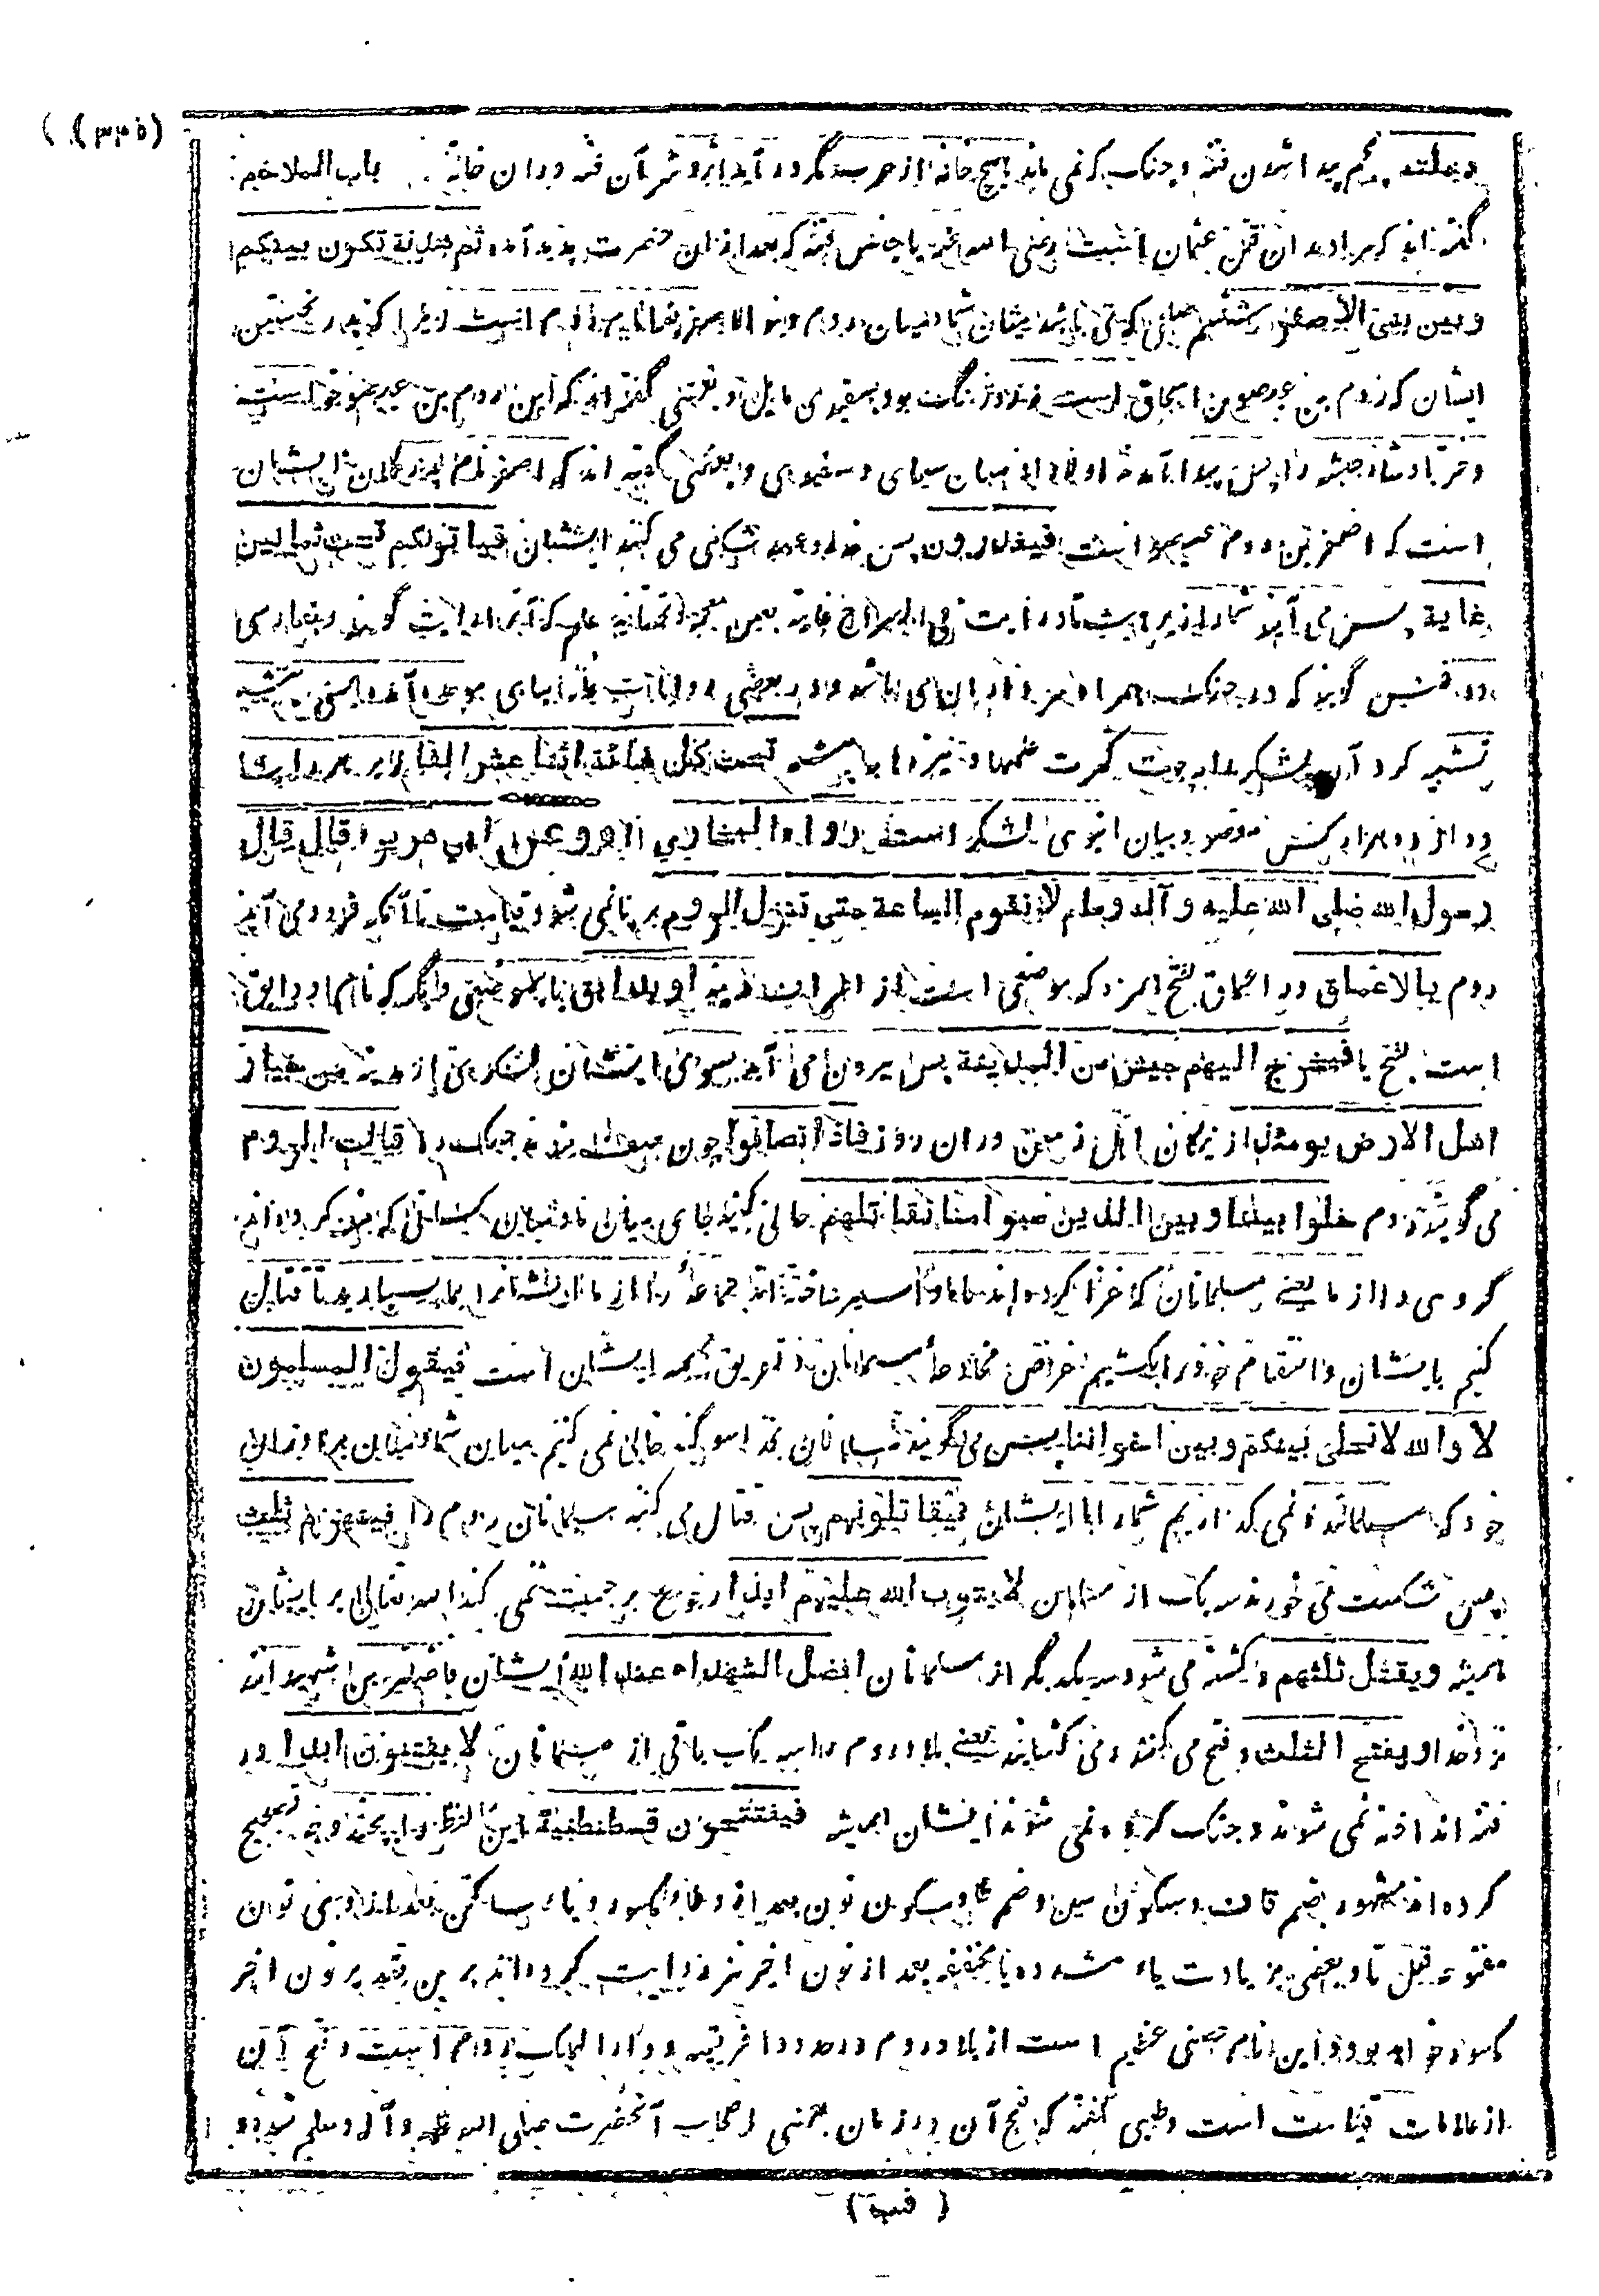 (۳۳۵)
دخلته پنجم پیدا شدن فتنه و جنگ که نمی ماند هیچ خانه از عرب مگر در آید اثر و شر آن فتنه دران خانه باب الملاحم
گفته اند که مراد بدان قتل عثمان است رضی الله عنه یا جنس فتنه که بعد ازان حضرت پدید آمده ثم هدنة تکون بینکم
وبین بنی الاصفر ششم صلح که می باشد میان شما و میان روم و بنو الاصفر نام روم است زیرا که پدر نخستین
ایشان که روم بن عیصو بن اسحاق است زرد رنگ بود بسفیدی مایل و بعضی گفته اند که این روم بن عیصو خواست
دختر بادشاه حبشه را پس پیدا آمد اولاد او میان سیاهی و سفیدی و بعضی گفته اند که اصفر نام پدر کلان ایشان
است که اصفر بن روم بن عیصو است فیغدرون پس غدر و عهد شکنی می کنند ایشان فیاتونکم تحت ثمانین
غایة پس می آیند شمارا زیر هشتاد رایت فی الصراح غایة بغین معجمه و تحتانیه علم که آنرا رایت گویند و بفارسی
درفش گویند که در جنگ همراه امرا و اعیان می باشد و در بعضی روایات غابة بباء موحده آمده بمعنی بیشه
تشبیه کرد آن لشکر را بجهت کثرت علمها و نیزها به بیشه تحت کل غایة اثنا عشر الفا زیر هر رایت
دوازده هزار کس مقصود بیان انبوهی لشکر است رواه البخاری وعن ابی هریرة قال قال
رسول الله صلی الله علیه و آله وسلم لا تقوم الساعة حتی تنزل الروم برپا نمی شود قیامت تا آنکه فرود می آیند
روم بالاعماق در اعماق بفتح همزه که موضعی است از اطراف مدینه او بدابق یا بموضعی دیگر که نام او دابق
است بفتح با فیخرج الیهم جیش من المدینة پس بیرون می آید بسوی ایشان لشکری از مدینه من خیار
اهل الارض یومئذ از نیکان اهل زمین دران روز فاذا تصافوا چون صف زنند جنگ را قالت الروم
می گویند روم خلوا بیننا وبین الذین سبوا منا نقاتلهم خالی کنید جای میان ما و میان کسانی که بند کرده اند
گروهی را از ما یعنی مسلمانان که غزا کرده اند باما و اسیر ساخته اند جماعه را از ما ایشانرا بما بسپارید تا قتال
کنیم بایشان و انتقام خود را بکشیم غرض مخادعه مسلمانان و تفریق کلمه ایشان است فیقول المسلمون
لا والله لا نخلی بینکم وبین اخواننا پس می گویند مسلمانان بخدا سوگند خالی نمی کنیم میان شما و میان برادران
خود که مسلمانند و نمی گذاریم شمارا با ایشان فیقاتلونهم پس قتال می کنند مسلمانان روم را فینهزم ثلث
پس شکست می خورند سه یک از مسلمانان لا یتوب الله علیهم ابدا رجوع برحمت نمی کند الله تعالی بر ایشان
همیشه ویقتل ثلثهم و کشته می شود سه یک دیگر از مسلمانان افضل الشهداء عند الله ایشان فاضلترین شهیدانند
نزد خدا ویفتتح الثلث و فتح می کنند و می کشایند یعنی بلاد روم را سه یک باقی از مسلمانان لا یفتنون ابدا در
فتنه انداخته نمی شوند و جنگ کرده نمی شوند ایشان همیشه فیفتتحون قسطنطینیة این لفظ را بچند وجه تصحیح
کرده اند مشهور بضم قاف و سکون سین و ضم طا و سکون نون بعد ازو طاء مکسور و یاء ساکن بعد ازو نون
مفتوحه قبل تا و بعضی بزیادت یاء مشدده یا مخففه بعد از نون اخیر نیز روایت کرده اند برین تقدیر نون اخیر
مکسور خواهد بود و این نام شهری عظیم است از بلاد روم در حدود افریقیه و دار الملک روم است و فتح آن
از علامات قیامت است و طیبی گفته که فتح آن در زمان بعضی اصحاب آنحضرت صلی الله علیه و آله وسلم شد و
(فتنة)